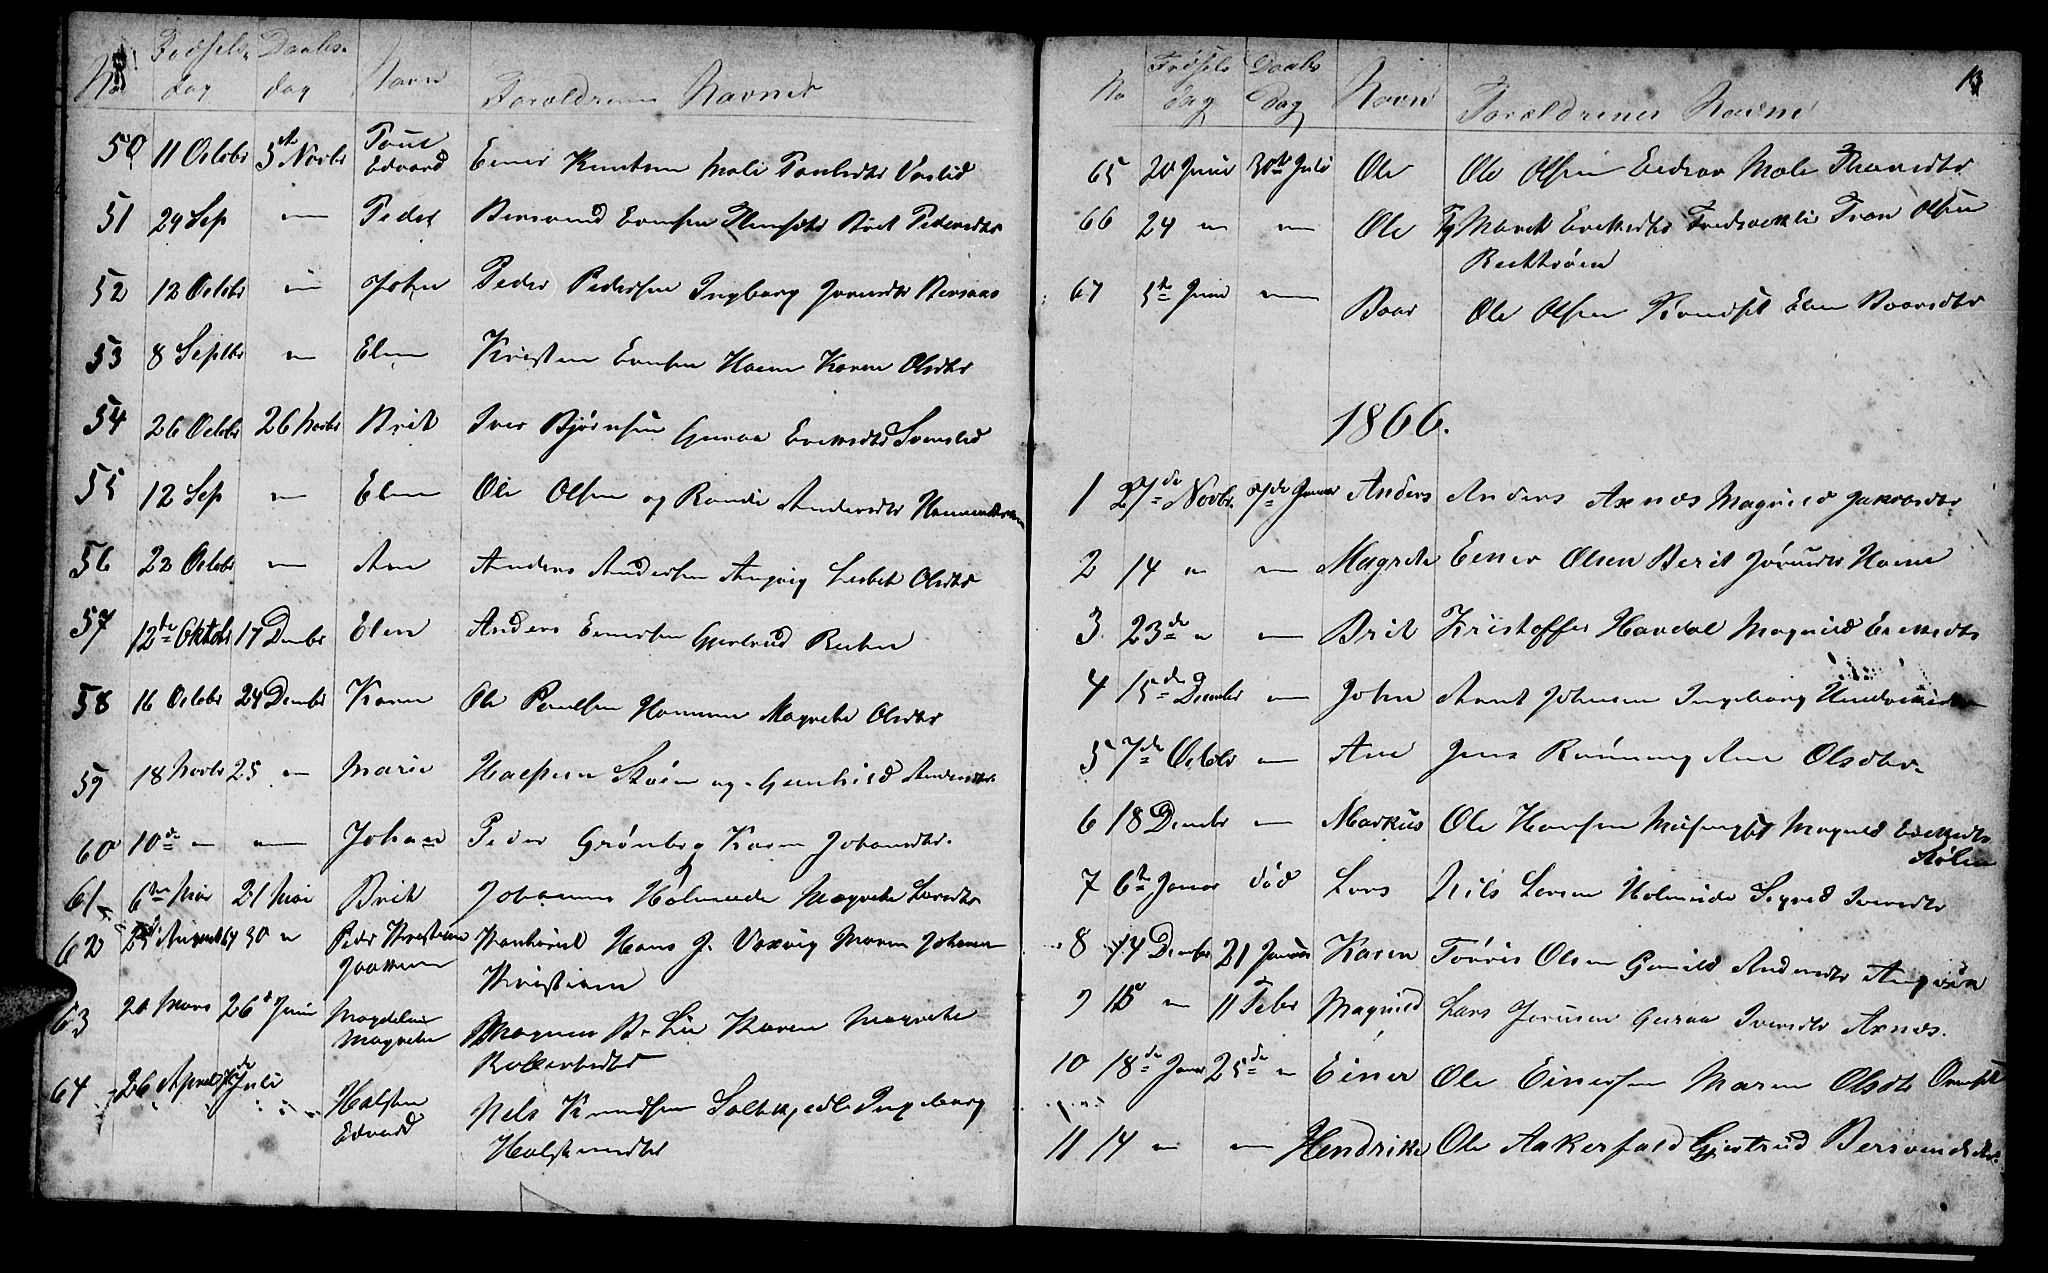 No Fødsels- dag Daabs- dag Navn Forældrenes Navne
50 11 Octobr 5te Novbr Poul Edvard Einer Knutsen Mali Poulsdtr Vaslid
51 29 Sep — Peder Bersvend Ernsen Brit Pedersdtr
52 12 Octobr — John Peder Pedersen Ingborg Joensdtr Bersaas
53 8 Septbr — Elen Kristen Ernsen Haem Karen Olsdtr
54 26 Octobr 26 Novbr Brit Iver Bjørnsen Guraa Eriksdtr Svenslid
55 12 Sep — Elen Ole Olsen og Randi Andersdtr
56 22 Octobr — Ane Anders Andersen Angvig Lisbet Olsdtr
57 12de Oktobr 17 Dembr Elen Anders Einersen Gjertrud
58 16 Octobr 24 Dembr Karen Ole Poulsen Hammer Magrete Olsdtr
59 18 Novbr 25 — Marie og Gunhild Andersdtr
60 10de — — Johan Peder Grønberg Karen Johansdtr.
61 6te Mai 21 Mai Brit Johannes Holmeide Magrete Larsdtr
62 25 August 30 — Peder Kristian Joakkim Hans J. Vaxvig Maren Johanna
Kristiane
63 20 Mars 26t Juni Magdelene Magrete Magnus B. Lie Karen Magrete
Robertsdtr
64 26 April Juli Halsten Edvard Nels Knudsen Saltkjedle Ingeborg
Halstensdtr
13
No Fødsels dag Daabs Dag Navn Forældrenes Navne
65 20 Juni 30te Juli Ole Ole Olsen Mali
66 24 — — Ole Marit Eriksdtr Tron Olsen
67 5te Juni — Baar Ole Olsen Elen Baarsdtr
1866.
1 27de Novbr. 7de Januar Anders Anders Axnæs Magnild Jakobsdtr
2 14 — — Magrete Einer Olsen Berit Jørnsdtr Haem
3 23de — — Brit Kristoffer Havdal Magnild Eriksdtr
4 15de Dembr — John Arnt Johnsen Ingeborg
5 7de Octobr — Ane Jens Rønning Ane Olsdtr.
6 18 Dembr — Markus Ole Hansen Magnild Eriksdtr
Stølen
7 6te Januar død Lars Nils Larsen Holmeide Sigrid Iversdtr
8 14 Dembr 21 Januar Karen Tørris Olsen Gunild Andersdtr
9 15 — 11 Febr Magnild Lars Joensen Guraa Iversdtr Axnæs.
10 18de Januar 25de — Einer Ole Einersen Maren Olsdtr
11 14 — — Hendrike Ole Aakerfald Gjertrud Bersvendsdtr